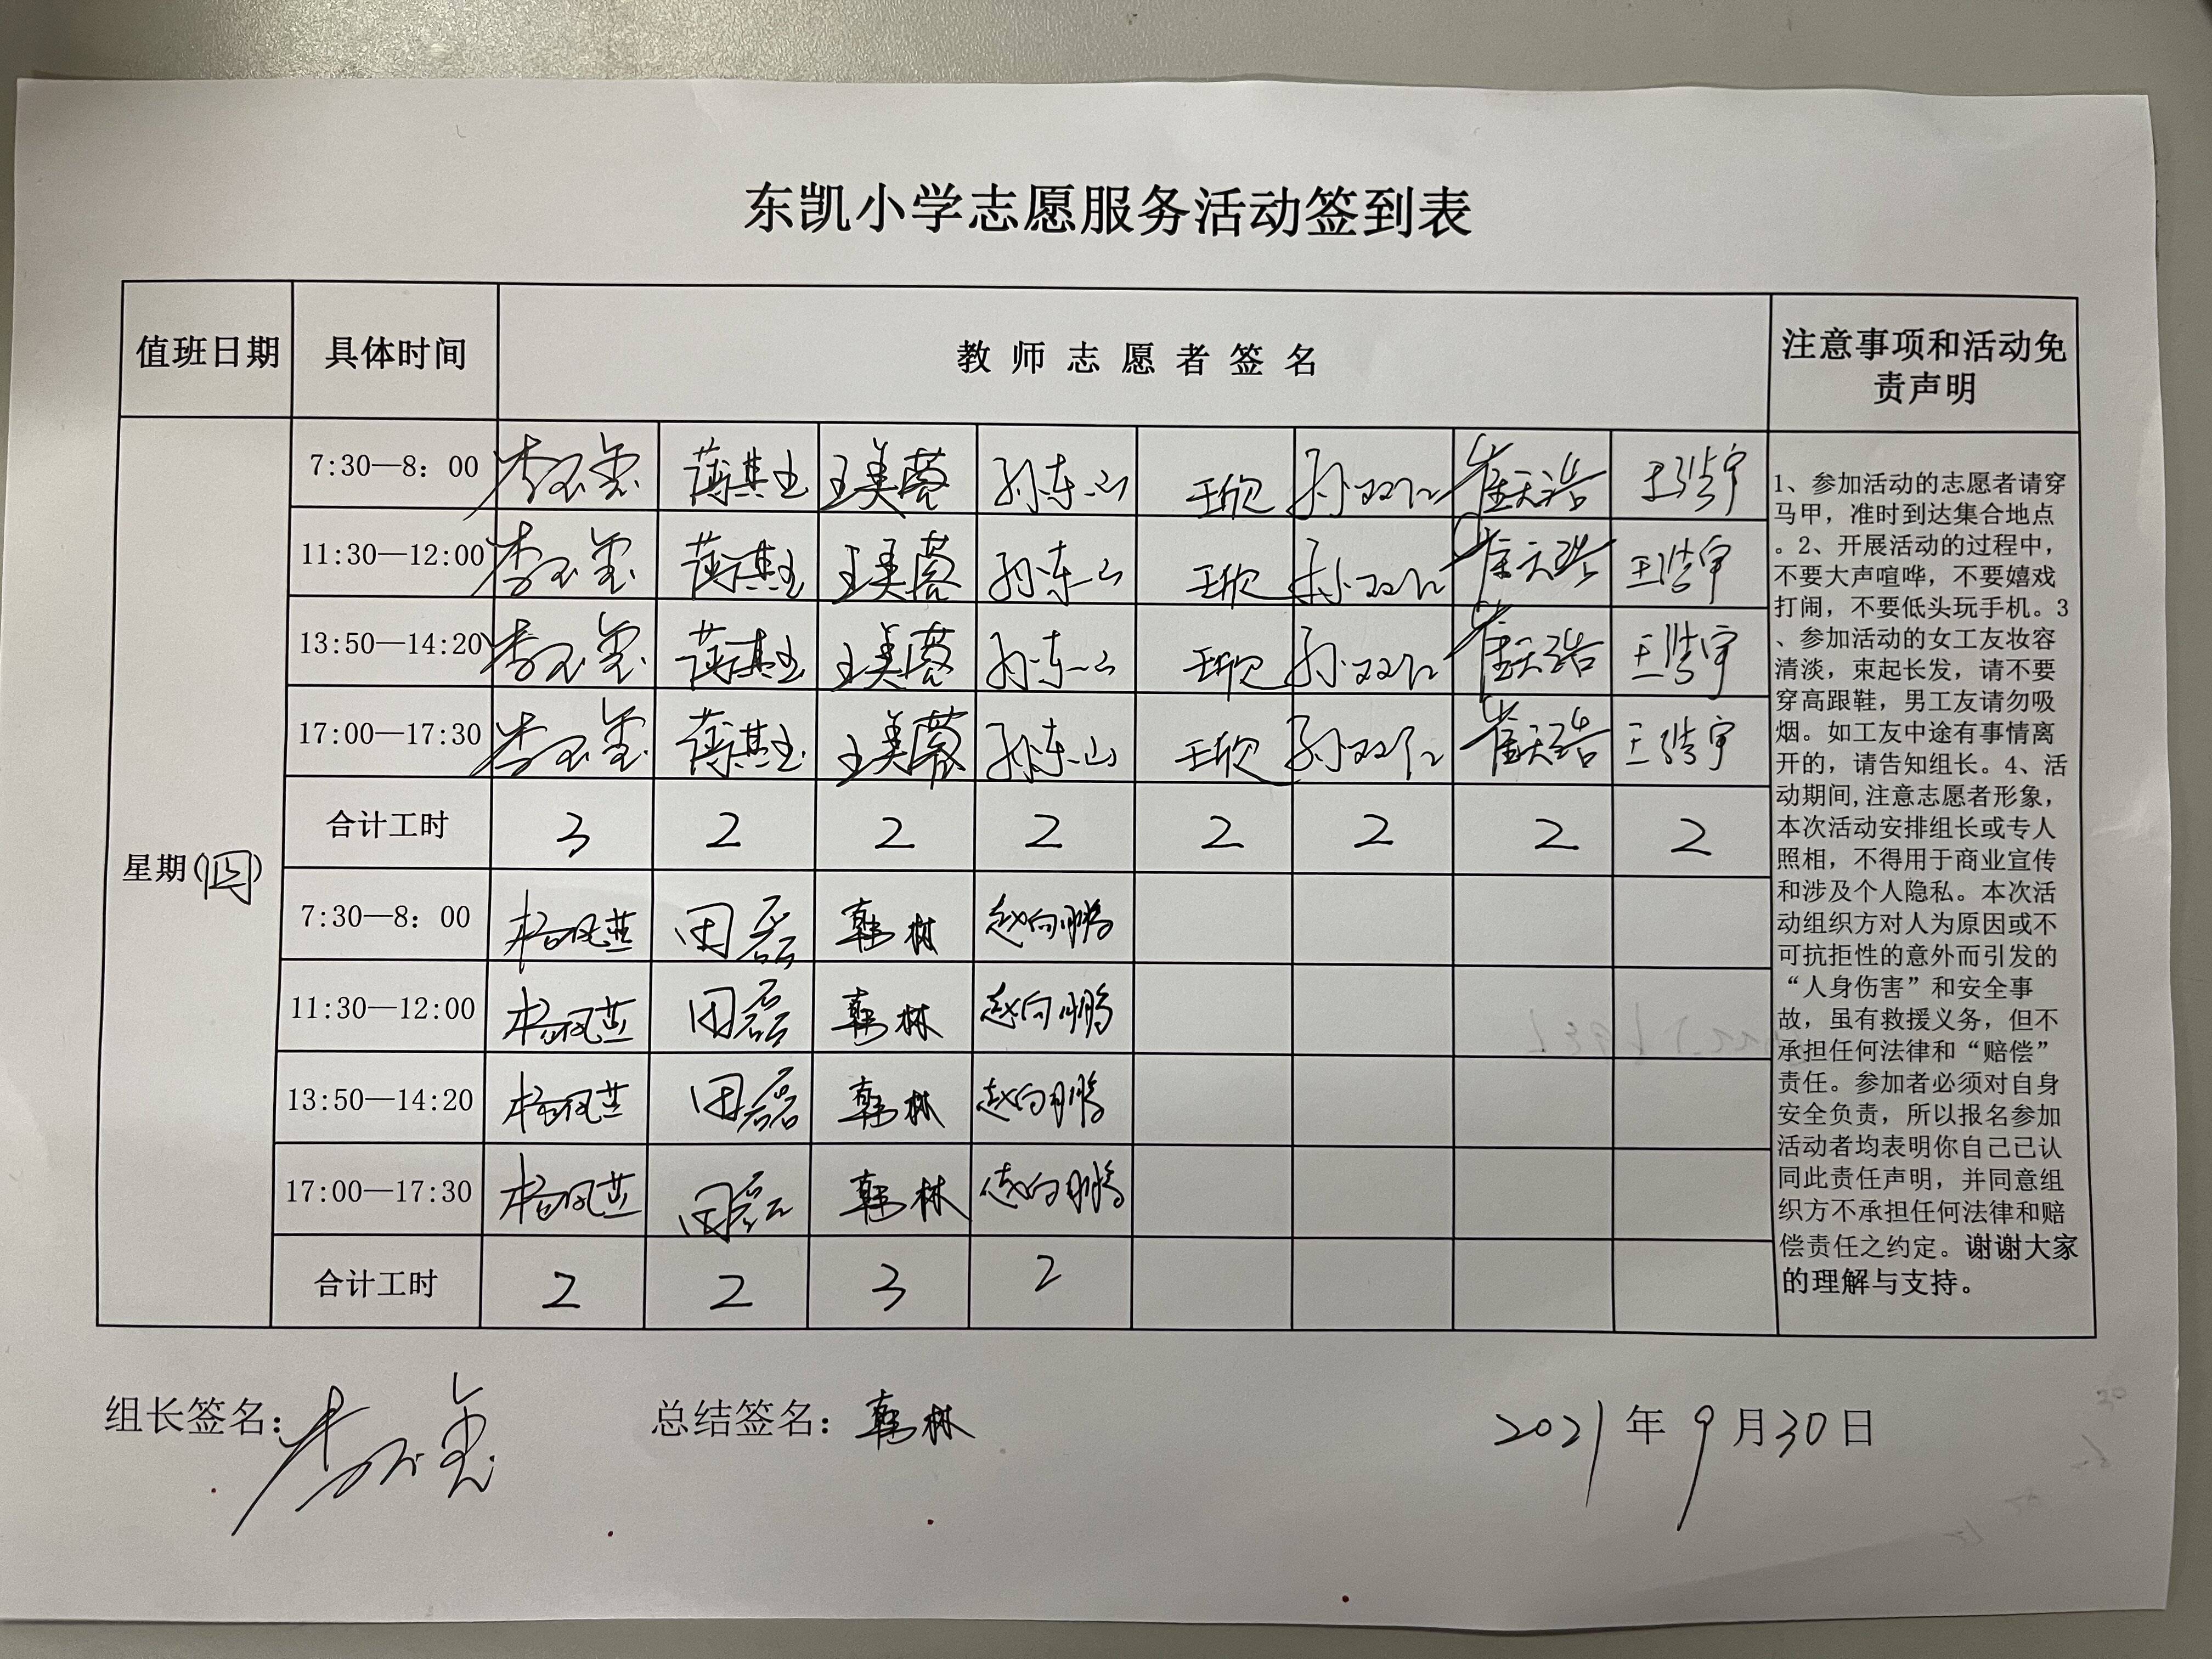 东凯小学志愿服务活动签到表
值班日期 具体时间 教师志愿者签名 注意事项和活动免
责声明
7:30—8：00 蒋其玉 王美蓉 孙东山 王欣 孙双仁 崔天浩 王浩宇
11:30—12:00 蒋其玉 王美蓉 孙东山 王欣 孙双仁 崔天浩 王浩宇
13:50—14:20 蒋其玉 王美蓉 孙东山 王欣 孙双仁 崔天浩 王浩宇
17:00—17:30 蒋其玉 王美蓉 孙东山 王欣 孙双仁 崔天浩 王浩宇
合计工时 3 2 2 2 2 2 2 2
星期(四)
7:30—8：00 杨凤燕 田磊 韩林 赵向鹏
11:30—12:00 杨凤燕 田磊 韩林 赵向鹏
13:50—14:20 杨凤燕 田磊 韩林 赵向鹏
17:00—17:30 杨凤燕 田磊 韩林 赵向鹏
合计工时 2 2 3 2
1、参加活动的志愿者请穿
马甲，准时到达集合地点
。2、开展活动的过程中，
不要大声喧哗，不要嬉戏
打闹，不要低头玩手机。3
、参加活动的女工友妆容
清淡，束起长发，请不要
穿高跟鞋，男工友请勿吸
烟。如工友中途有事情离
开的，请告知组长。4、活
动期间,注意志愿者形象，
本次活动安排组长或专人
照相，不得用于商业宣传
和涉及个人隐私。本次活
动组织方对人为原因或不
可抗拒性的意外而引发的
“人身伤害”和安全事
故，虽有救援义务，但不
承担任何法律和“赔偿”
责任。参加者必须对自身
安全负责，所以报名参加
活动者均表明你自己已认
同此责任声明，并同意组
织方不承担任何法律和赔
偿责任之约定。谢谢大家
的理解与支持。
组长签名： 总结签名：韩林 2021年9月30日